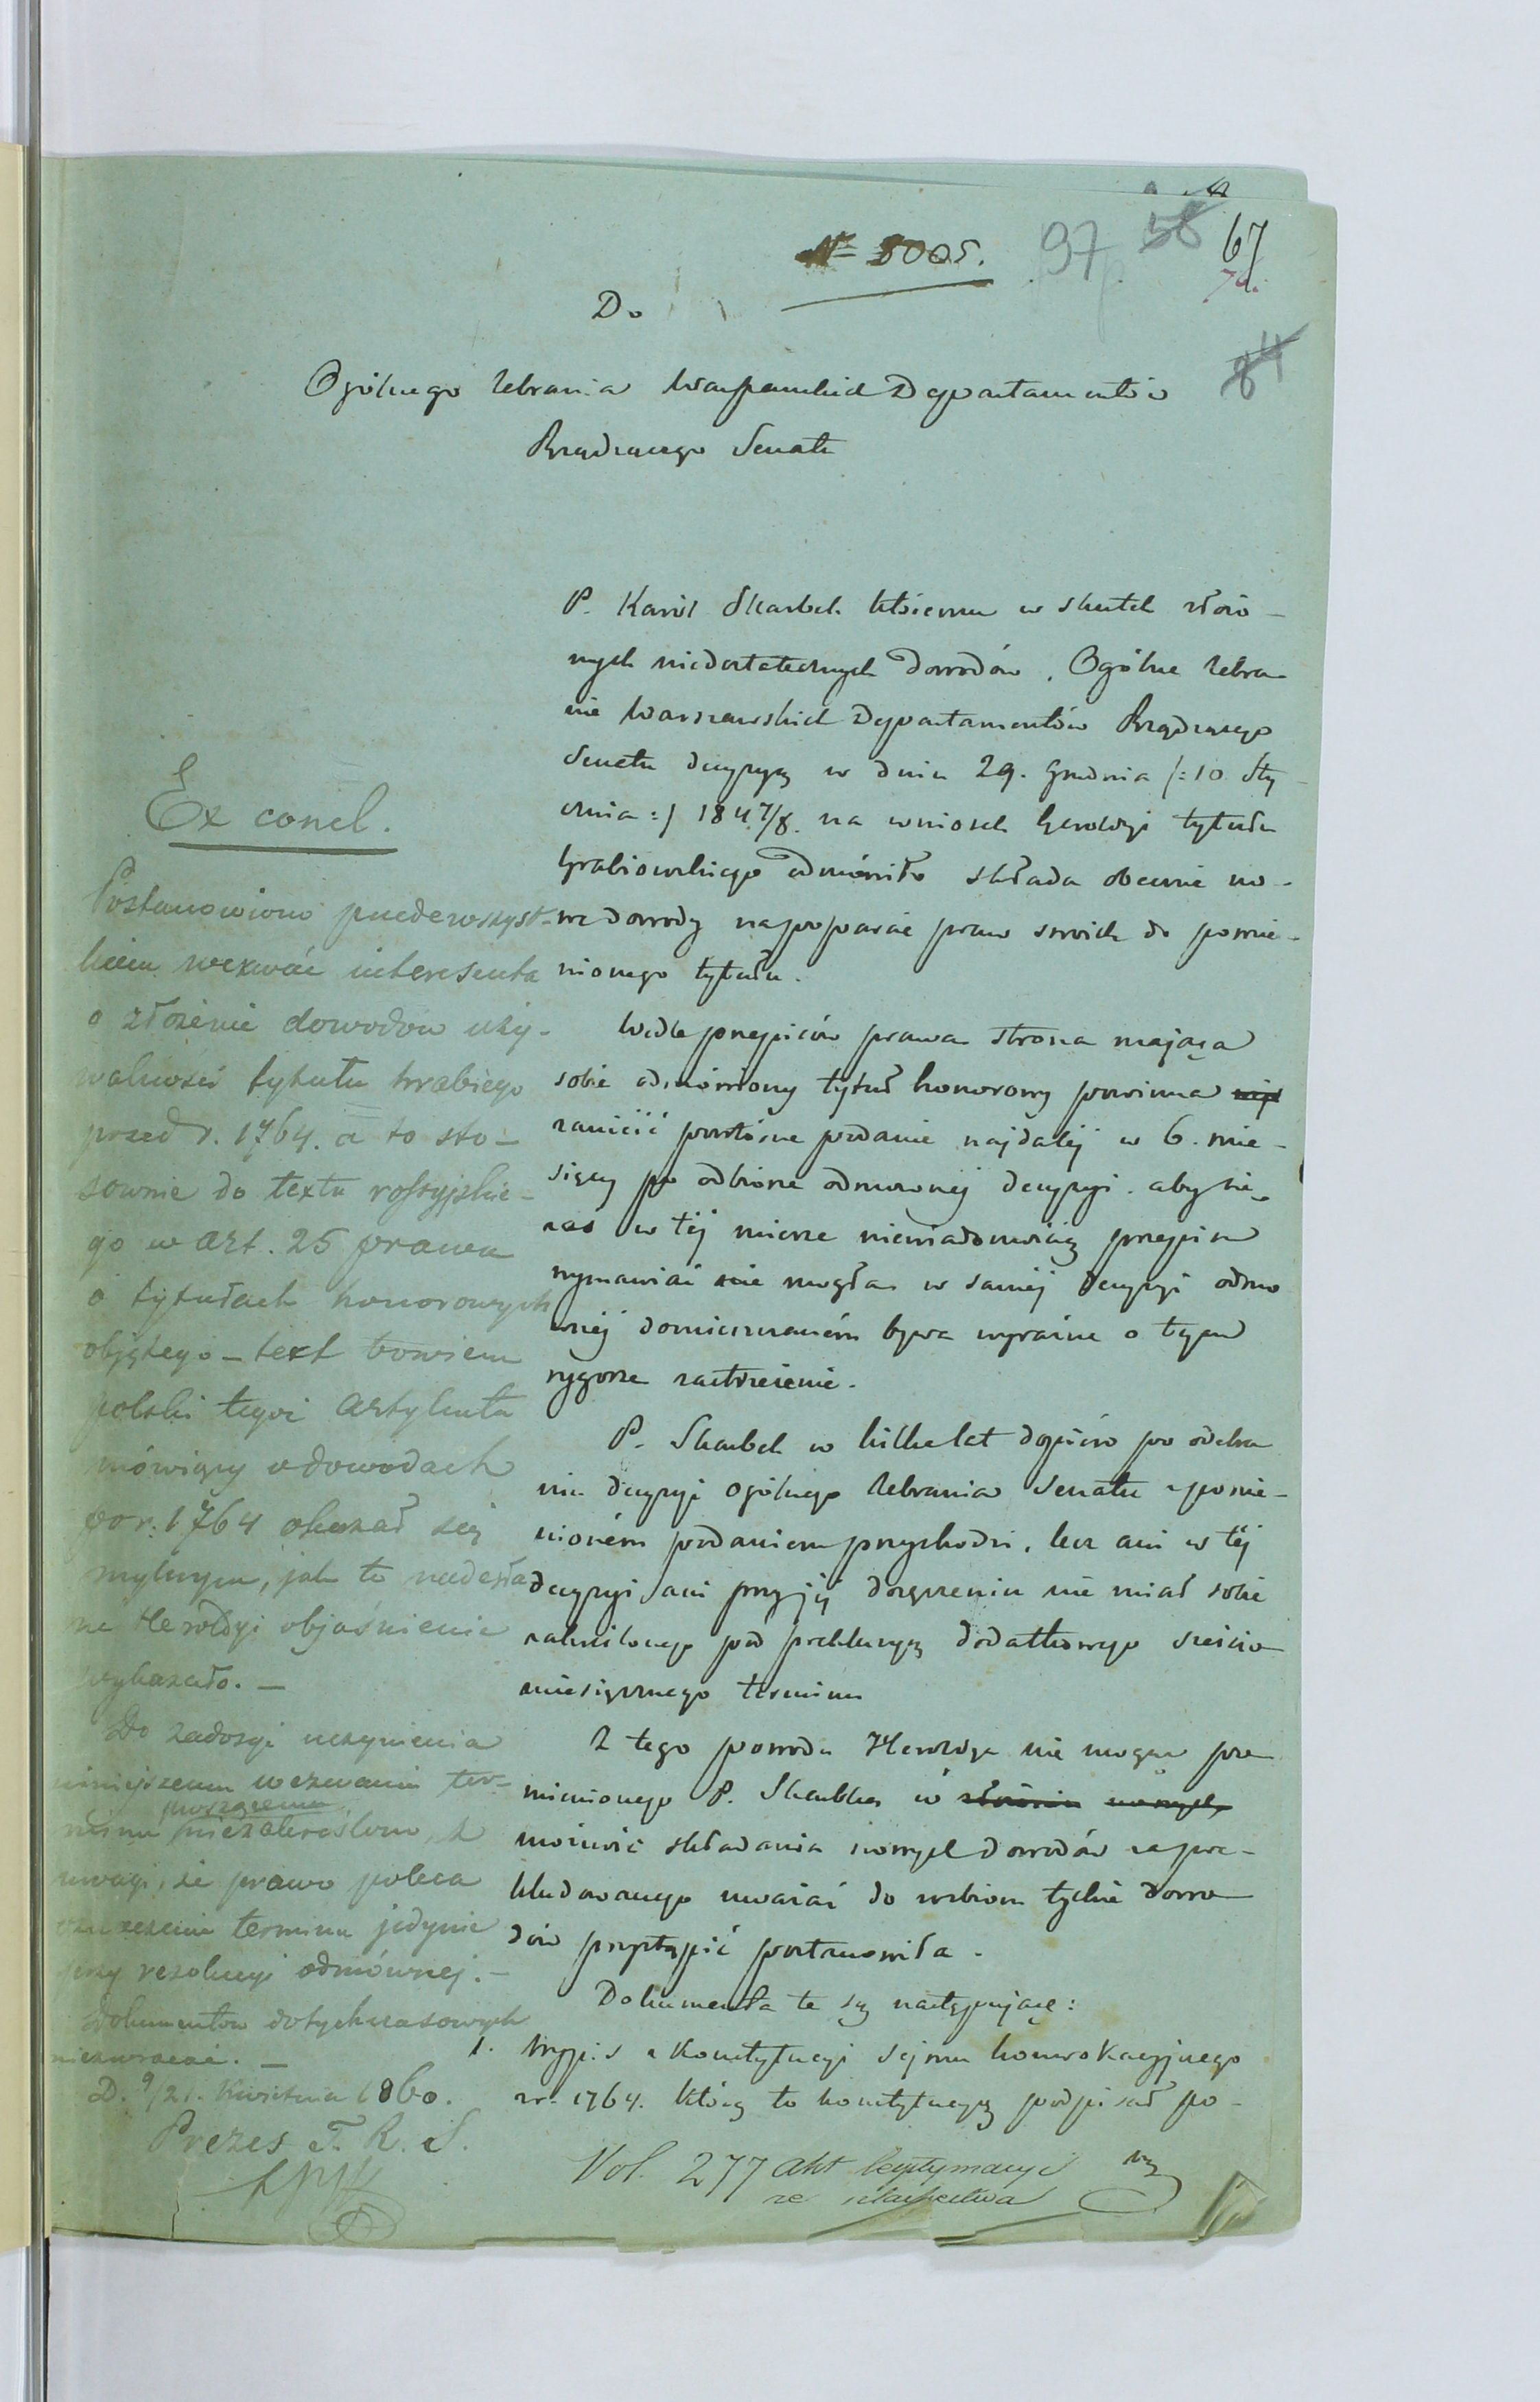 № 5005.
97 58 67
84
Do
Ogólnego Zebrania Warszawskich Departamentów
Rządzącego Senatu
P. Karól Skarbek któremu w skutek złożo-
nych niedostatecznych dowodów, Ogólne Zebra-
nie Warszawskich Departamentów Rządzącego
Senatu decyzyą w dniu 29. Grudnia /:10 Sty-
cznia:/ 1847/8. na wniosek Heroldyi tytułu
Hrabiowskiego odmówiło składa obecnie no-
we dowody na poparcie praw swoich do pomie-
nionego tytułu.
Wedle przepisów prawa strona mająca
sobie odmówiony tytuł honorowy powinna
zanieść powtórne podanie najdalej w 6. mie-
sięcy po odbiorze odmownej decyzyi. aby się
zaś w tej mierze niewiadomością przepisu
wymawiać nie mogła w samej decyzyi odmo
wnéj domieszczaném bywa wyraźne o tym
rygorze zastrzeżenie.
P. Skarbek w kilka lat dopiéro po odebra
niu decyzyi Ogólnego Zebrania Senatu z pomie-
nioném podaniem przychodzi, lecz ani w téj
decyzyi ani przy jéj doręczeniu nie miał sobie
zakreślonego pod prekluzyą dodatkowego sześcio
miesięcznego terminu
Z tego powodu Heroldya nie mogąc po
mienionego P. Skarbka w złożeniu nowych
możność składania nowych dowodów za pre-
kludowanego uważać do rozbioru tychże dowo
dów przystąpić postanowiła.
Dokumenta te są następujące:
1. Wypis z Konstytucyi sejmu konwokacyjnego
z r. 1764. którą to konstytucyą podpisał po-
Vol. 277 akt legitymacyi
ze szlachectwa
Ex concl.
Postanowiono przedewszyst-
kiem wezwać interesenta
o złożenie dowodów uży-
walności tytułu hrabiego
przed r. 1764. a to sto-
sownie do textu rossyjskie-
go w art. 25 prawa
o tytułach honorowych
objętego – text bowiem
polski tegoż artykułu
mówiący o dowodach
po r. 1764 okazał się
mylnym, jak to nadesła
ne Heroldyi objaśnienie
wykazało. –
Do zadosyć uczynienia
niniejszemu wezwaniu ter-
minu niezakreślono, z
uwagi, że prawo poleca
oznaczenie terminu jedynie
przy rezolucyi odmównej. –
Dokumentów dotychczasowych
niezwracać. –
D. 9/21. Kwietnia 1860.
Prezes T. R. S.